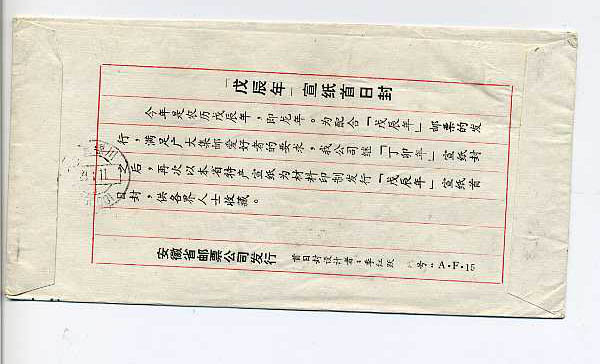 「戊辰年」宣纸首日封
今年是农历戊辰年，即龙年。为配合「戊辰年」邮票的发
行，满足广大集邮爱好者的要求，我公司继「丁卯年」宣纸封
之后，再次以本省特产宣纸为材料印制发行「戊辰年」宣纸首
日封，供各界人士收藏。
安徽省邮票公司发行
首日封设计者：季红跃